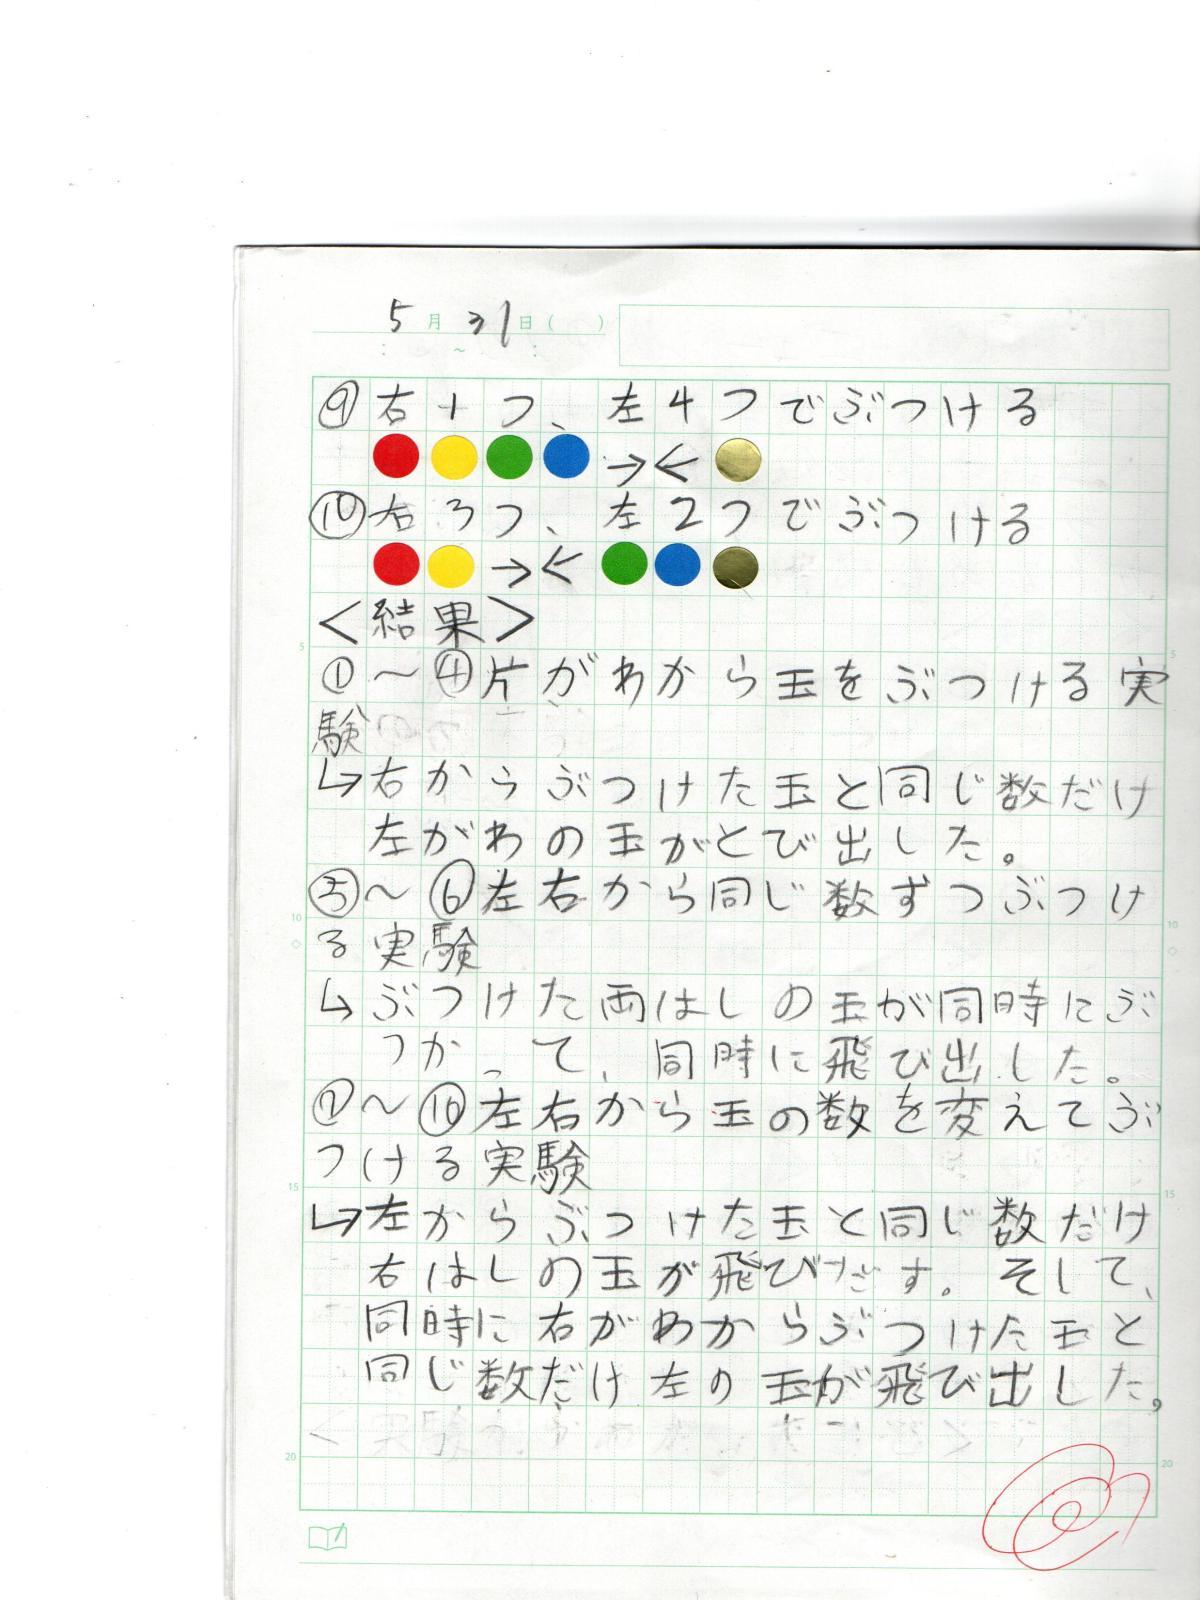 5月31日( )
: ~ :
⑨右1つ、左4つでぶつける
→←
⑩右3つ、左2つでぶつける
→←
<結果>
5 5
①〜④片がわから玉をぶつける実
験
↳右からぶつけた玉と同じ数だけ
左がわの玉がとび出した。
⑤〜⑥左右から同じ数ずつぶつけ
10 10
る実験
↳ぶつけた両はしの玉が同時にぶ
つかって、同時に飛び出した。
⑦〜⑩左右から玉の数を変えてぶ
つける実験
15 15
↳左からぶつけた玉と同じ数だけ
右はしの玉が飛びだす。そして、
同時に右がわからぶつけた玉と
同じ数だけ左の玉が飛び出した。
20 20